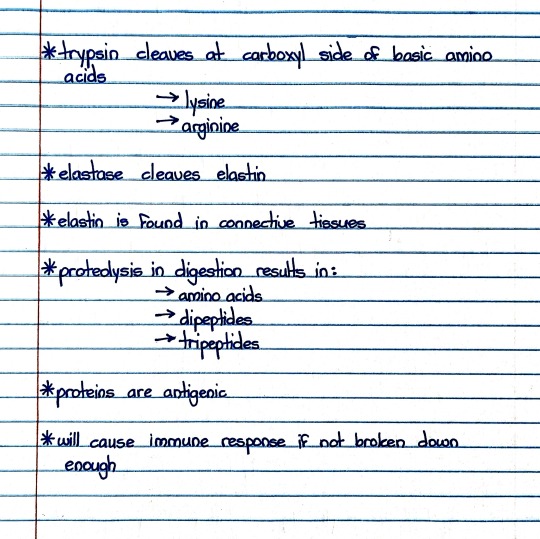 *trypsin cleaves at carboxyl side of basic amino
acids
→ lysine
→ arginine
*elastase cleaves elastin
*elastin is found in connective tissues
*proteolysis in digestion results in:
→ amino acids
→ dipeptides
→ tripeptides
*proteins are antigenic
*will cause immune response if not broken down
enough